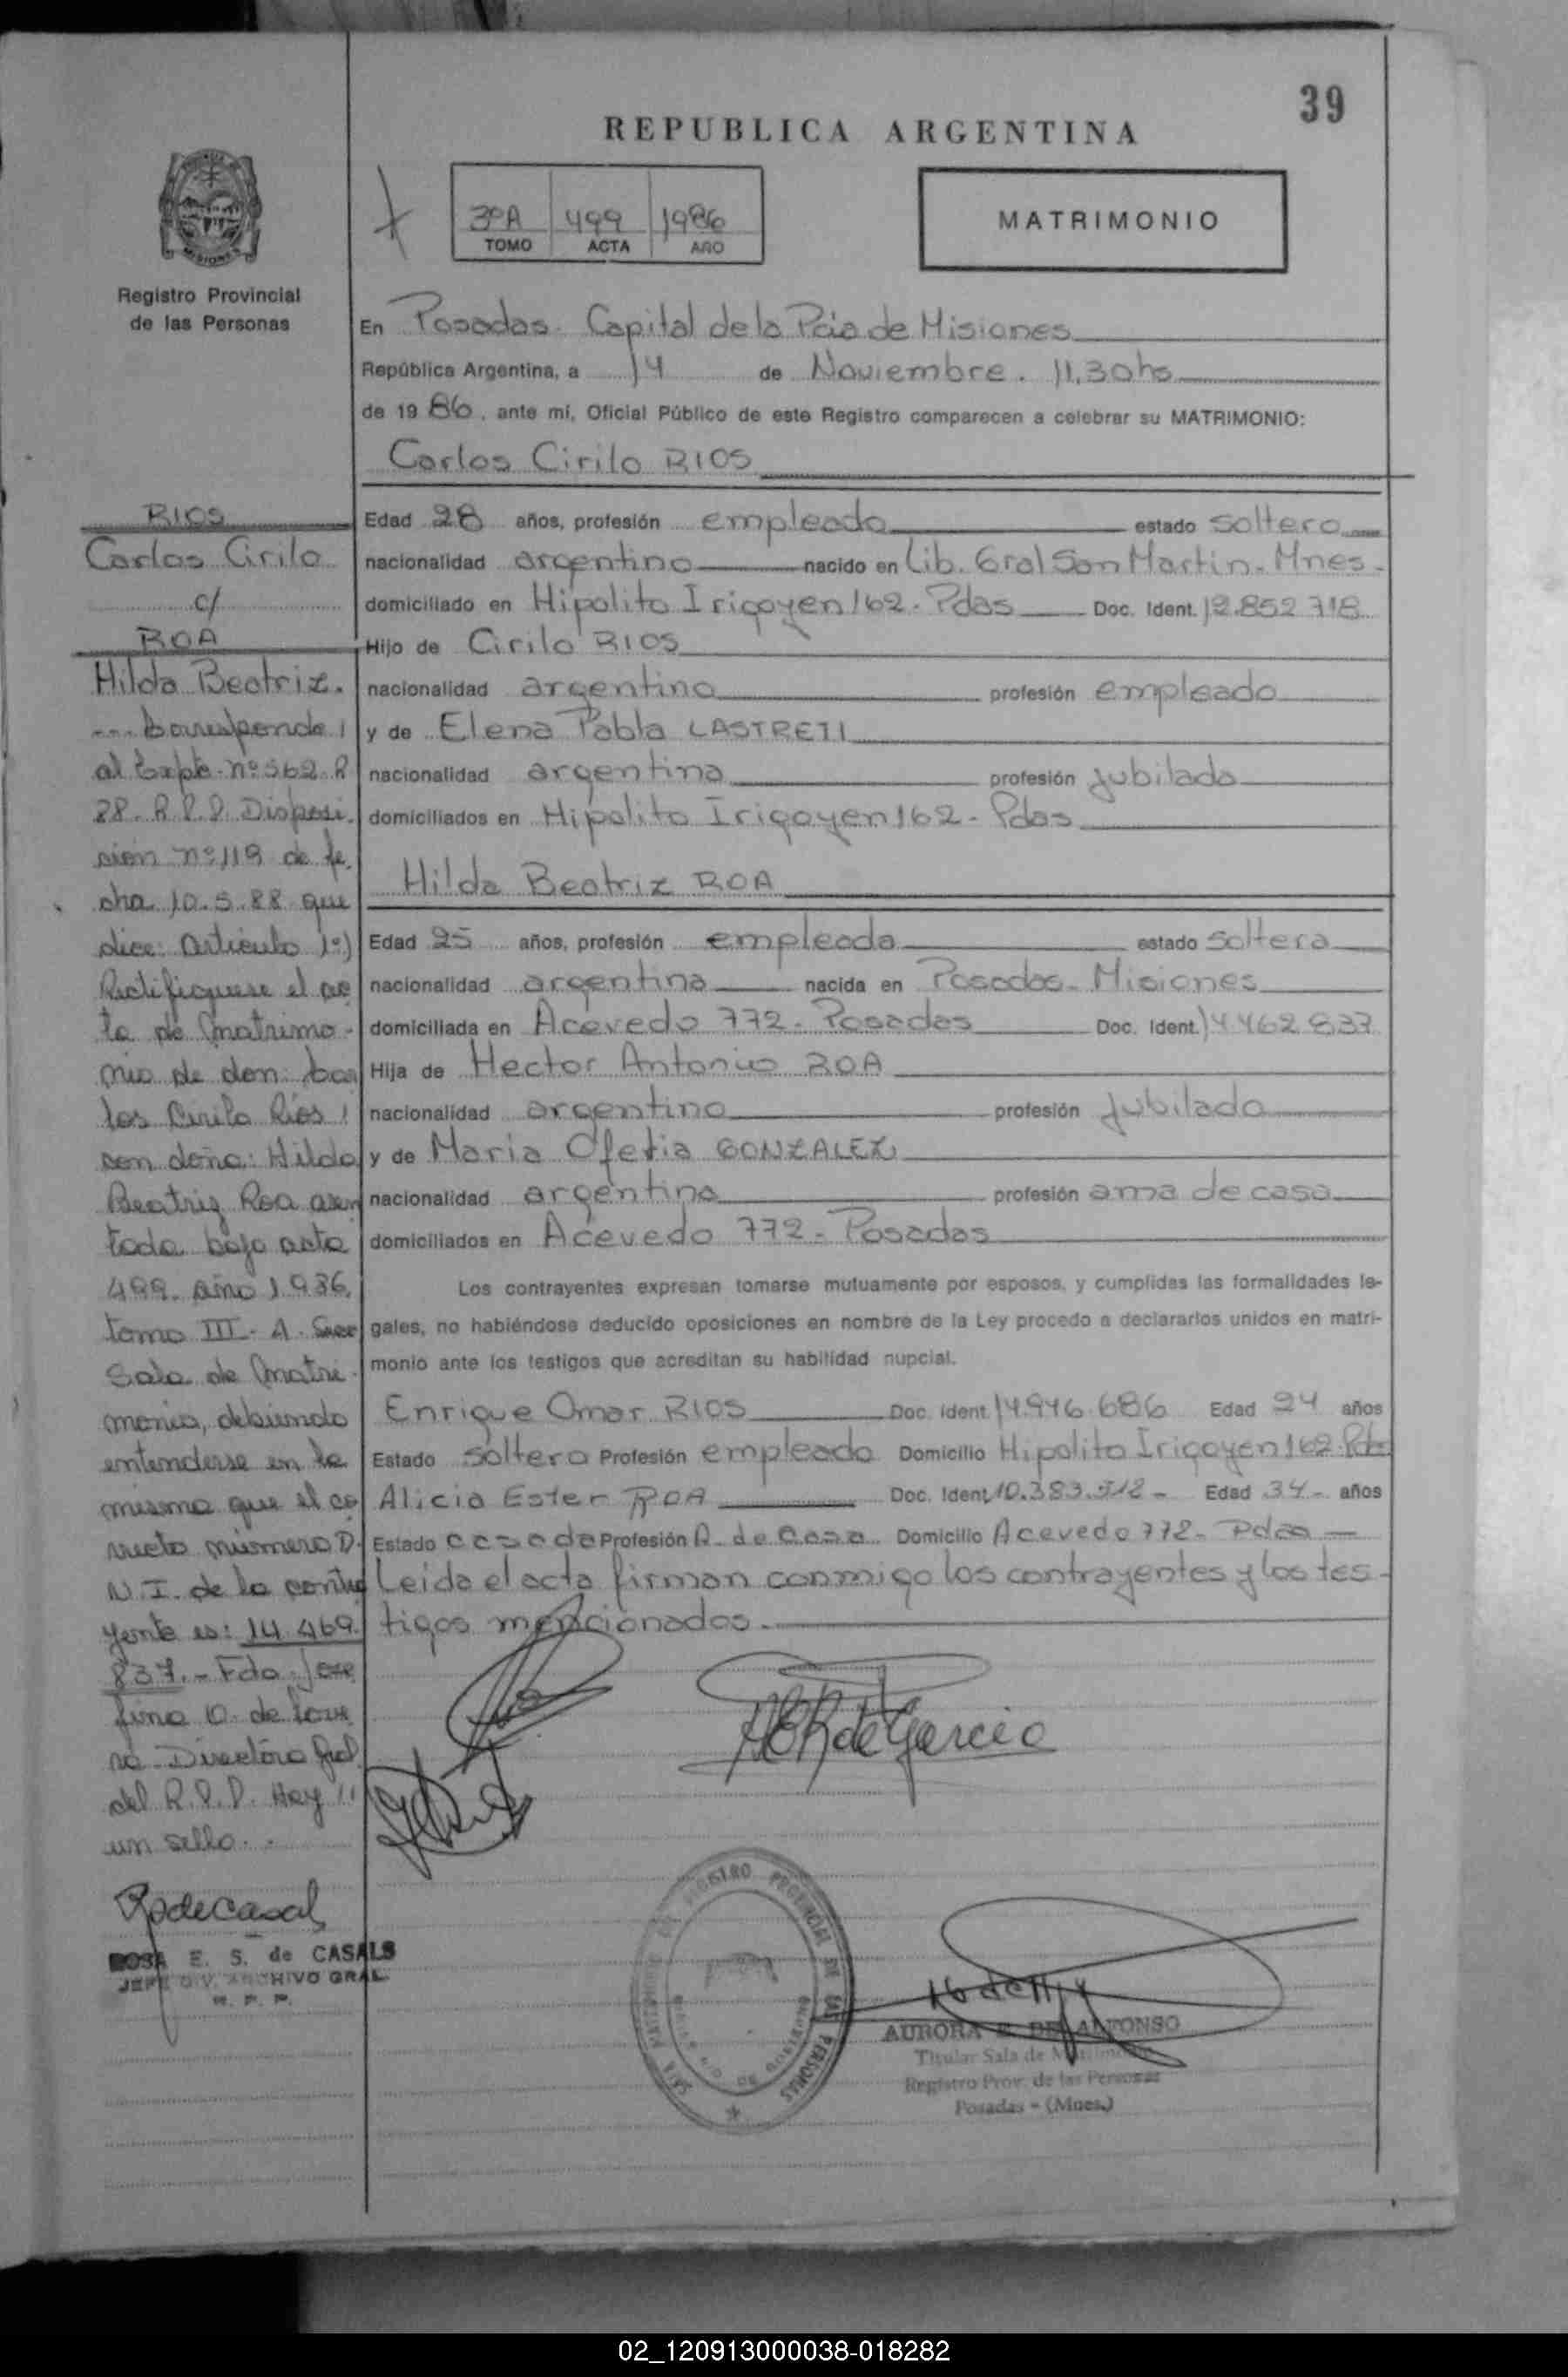 39
REPUBLICA ARGENTINA
3ºA 499 1986
TOMO ACTA AÑO
MATRIMONIO
MISIONES
Registro Provincial
de las Personas
En Posadas. Capital de la Pcia de Misiones
República Argentina, a 14 de Noviembre. 11,30hs
de 1986, ante mí, Oficial Público de este Registro comparecen a celebrar su MATRIMONIO:
Carlos Cirilo RIOS
Edad 28 años, profesión empleado estado soltero
nacionalidad argentino nacido en Lib. Gral San Martin. Mnes.
domiciliado en Hipolito Irigoyen 162. Pdas Doc. Ident. 12.852.718
Hijo de Cirilo RIOS
nacionalidad argentino profesión empleado
y de Elena Pabla LASTRETI
nacionalidad argentina profesión jubilada
domiciliados en Hipolito Irigoyen 162. Pdas
Hilda Beatriz ROA
Edad 25 años, profesión empleada estado soltera
nacionalidad argentina nacida en Posadas. Misiones
domiciliada en Acevedo 772. Posadas Doc. Ident. 14.462.837
Hija de Hector Antonio ROA
nacionalidad argentino profesión jubilado
y de Maria Ofelia GONZALEZ
nacionalidad argentina profesión ama de casa
domiciliados en Acevedo 772. Posadas
Los contrayentes expresan tomarse mutuamente por esposos, y cumplidas las formalidades le-
gales, no habiéndose deducido oposiciones en nombre de la Ley procedo a declararlos unidos en matri-
monio ante los testigos que acreditan su habilidad nupcial.
Enrique Omar RIOS Doc. Ident. 14.946.686 Edad 24 años
Estado soltero Profesión empleado Domicilio Hipolito Irigoyen 162. Pds
Alicia Ester ROA Doc. Ident. 10.383.512 - Edad 34 - años
Estado casada Profesión A. de Casa Domicilio Acevedo 772 - Pdas
Leida el acta firman conmigo los contrayentes y los tes-
tigos mencionados.
RIOS
Carlos Cirilo
c/
ROA
Hilda Beatriz.
Corresponde
al Expte. nº 562. R
88. R.P.P. Disposi-
cion nº 119 de fe-
cha 10.5.88 que
dice: Articulo 1º)
Rectifiquese el ac
ta de matrimo-
nio de don: Car
los Cirilo Ríos
con doña: Hilda
Beatriz Roa asen
tada bajo acta
499. Año 1.986,
tomo III. A.
Sala de Matri-
monio, debiendo
entenderse en la
misma que el co
rrecto número D.
N.I. de la contra
yente es: 14.469.
837.- Fdo. Jose
fina O. de
Directora Gral
del R.P.P. Hay
un sello.
RdeCasals
ROSA E. S. de CASALS
JEFE DIV. ARCHIVO GRAL.
R. P. P.
AER de Garcia
REGISTRO PROVINCIAL DE LAS PERSONAS
AURORA E. DE ALFONSO
Titular Sala de Matrimonio
Registro Prov. de las Personas
Posadas - (Mnes.)
02_120913000038-018282